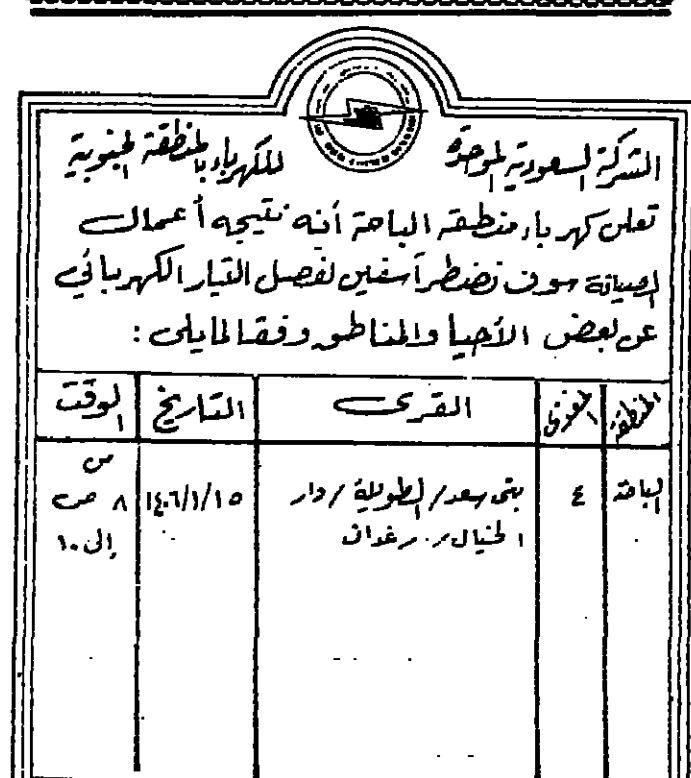 الشركة السعودية الموحدة للكهرباء بالمنطقة الجنوبية
تعلن كهرباء منطقة الباحة أنه نتيجه أعمال
الصيانة سوف نضطر آسفين لفصل التيار الكهربائي
عن بعض الأحيا والمناطق وفقا لمايلى :
المنطقة المغذى القرى التاريخ الوقت
الباحة ٤ بنى سعد / الطويلة / دار ١٤٠٦/١/١٥ من
الخيال / رغدان ٨ ص
إلى ١٠